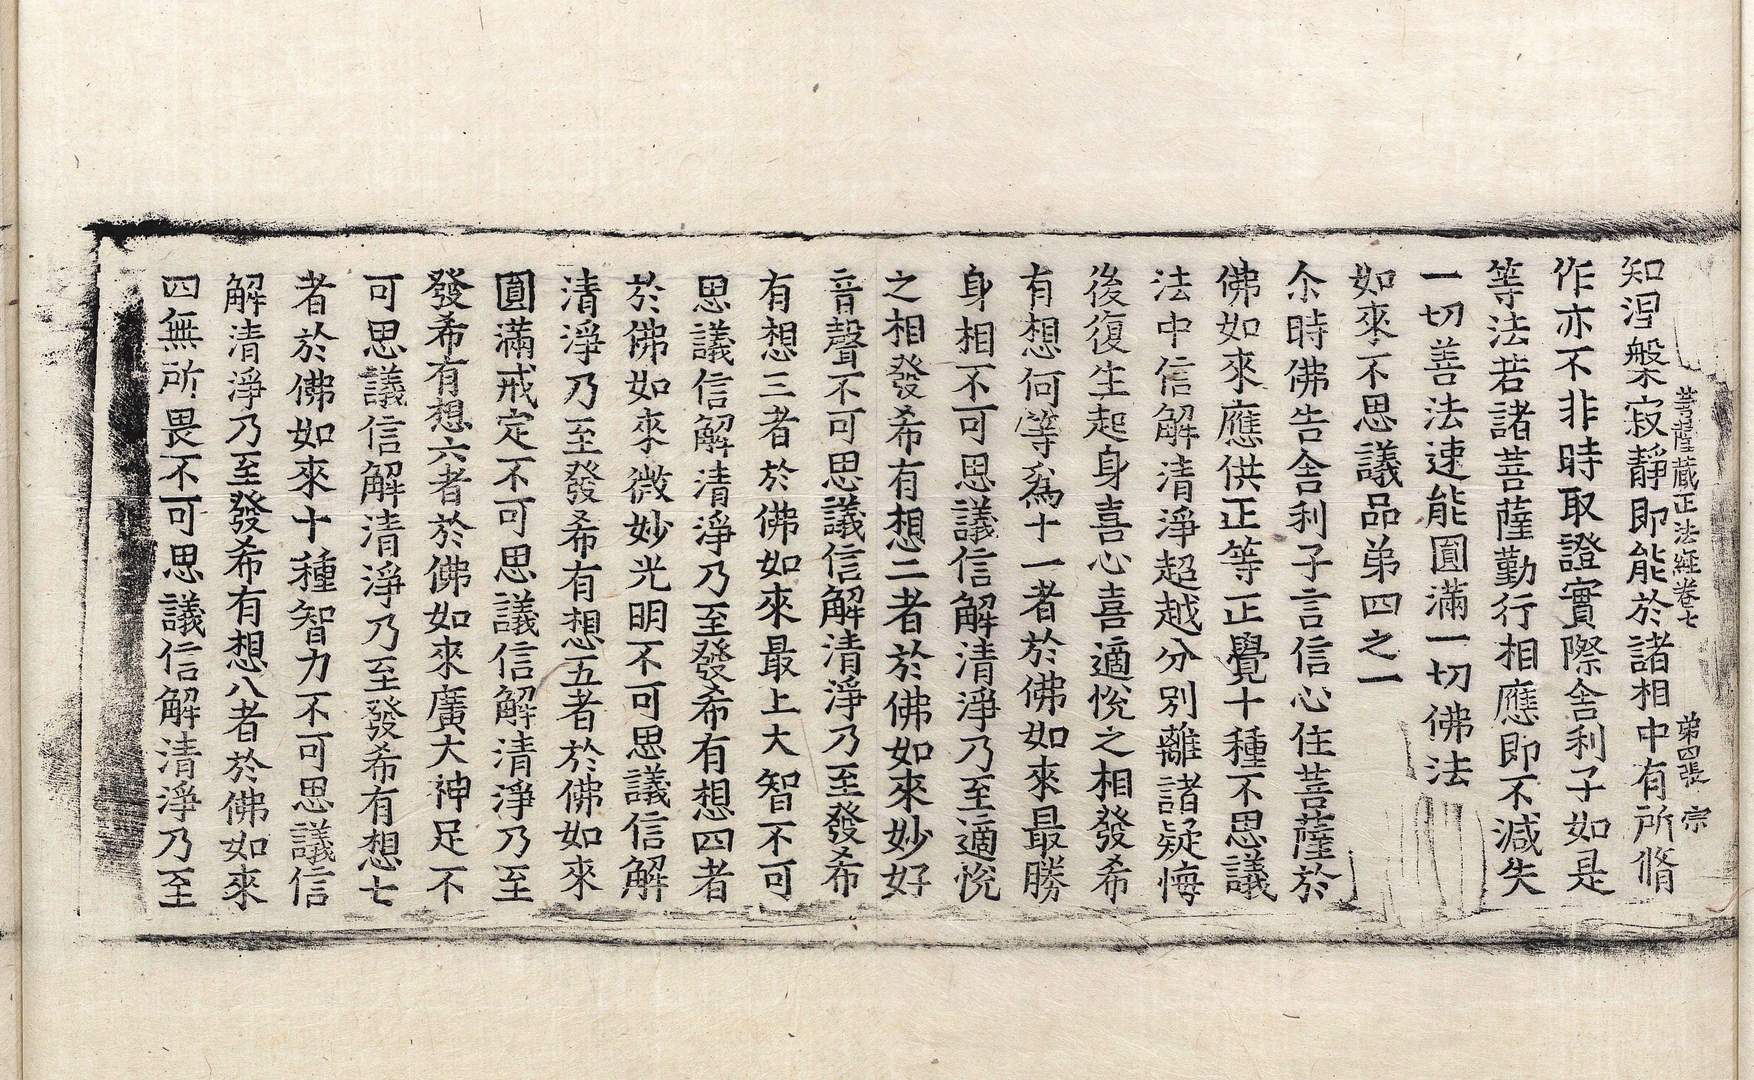 菩薩藏正法經卷七　第四張　宗
知涅槃寂靜即能於諸相中有所脩
作亦不非時取證實際舍利子如是
等法若諸菩薩勤行相應即不減失
一切善法速能圓滿一切佛法
如來不思議品第四之一
尒時佛告舍利子言信心住菩薩於
佛如來應供正等正覺十種不思議
法中信解清淨超越分別離諸疑悔
後復生起身喜心喜適悅之相發希
有想何等爲十一者於佛如來最勝
身相不可思議信解清淨乃至適悅
之相發希有想二者於佛如來妙好
音聲不可思議信解清淨乃至發希
有想三者於佛如來最上大智不可
思議信解清淨乃至發希有想四者
於佛如來微妙光明不可思議信解
清淨乃至發希有想五者於佛如來
圓滿戒定不可思議信解清淨乃至
發希有想六者於佛如來廣大神足不
可思議信解清淨乃至發希有想七
者於佛如來十種智力不可思議信
解清淨乃至發希有想八者於佛如來
四無所畏不可思議信解清淨乃至